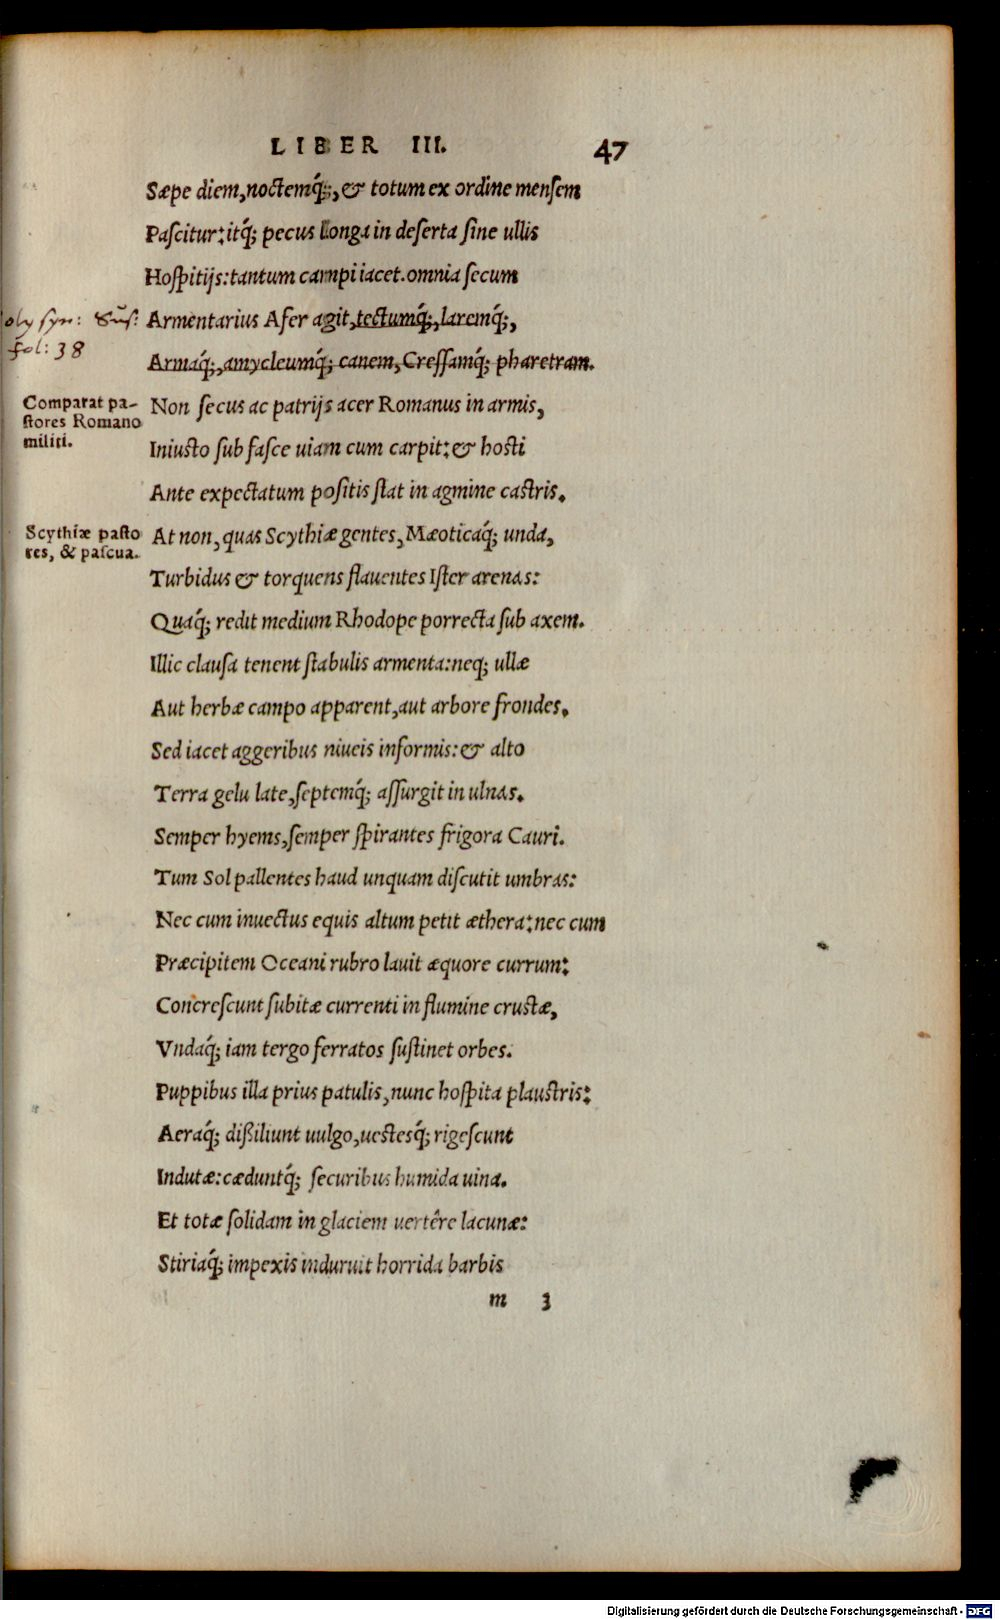 LIBER III. 47
Sæpe diem,noctemq́;,& totum ex ordine mensem
Pascitur:itq́; pecus longa in deserta sine ullis
Hospitijs:tantum campi iacet.omnia secum
oly syn: Sus:
fol: 38
Armentarius Afer agit,tectumq́;,laremq́;,
Armaq́;,amycleumq́; canem,Cressamq́; pharetram.
Comparat pa-
stores Romano
militi.
Non secus ac patrijs acer Romanus in armis,
Iniusto sub fasce uiam cum carpit:& hosti
Ante expectatum positis stat in agmine castris.
Scythiæ pasto
res, & pascua.
At non,quas Scythiæ gentes,Mæoticaq́; unda,
Turbidus & torquens flauentes Ister arenas:
Quaq́; redit medium Rhodope porrecta sub axem.
Illic clausa tenent stabulis armenta:neq; ullæ
Aut herbæ campo apparent,aut arbore frondes,
Sed iacet aggeribus niueis informis:& alto
Terra gelu late,septemq́; assurgit in ulnas.
Semper hyems,semper spirantes frigora Cauri.
Tum Sol pallentes haud unquam discutit umbras:
Nec cum inuectus equis altum petit æthera:nec cum
Præcipitem Oceani rubro lauit æquore currum:
Concrescunt subitæ currenti in flumine crustæ,
Vndaq́; iam tergo ferratos sustinet orbes.
Puppibus illa prius patulis,nunc hospita plaustris:
Aeraq́; dißiliunt uulgo,uestesq́; rigescunt
Indutæ:cæduntq́; securibus humida uina.
Et totæ solidam in glaciem uertêre lacunæ:
Stiriaq́; impexis induruit horrida barbis
m 3
Digitalisierung gefördert durch die Deutsche Forschungsgemeinschaft - DFG